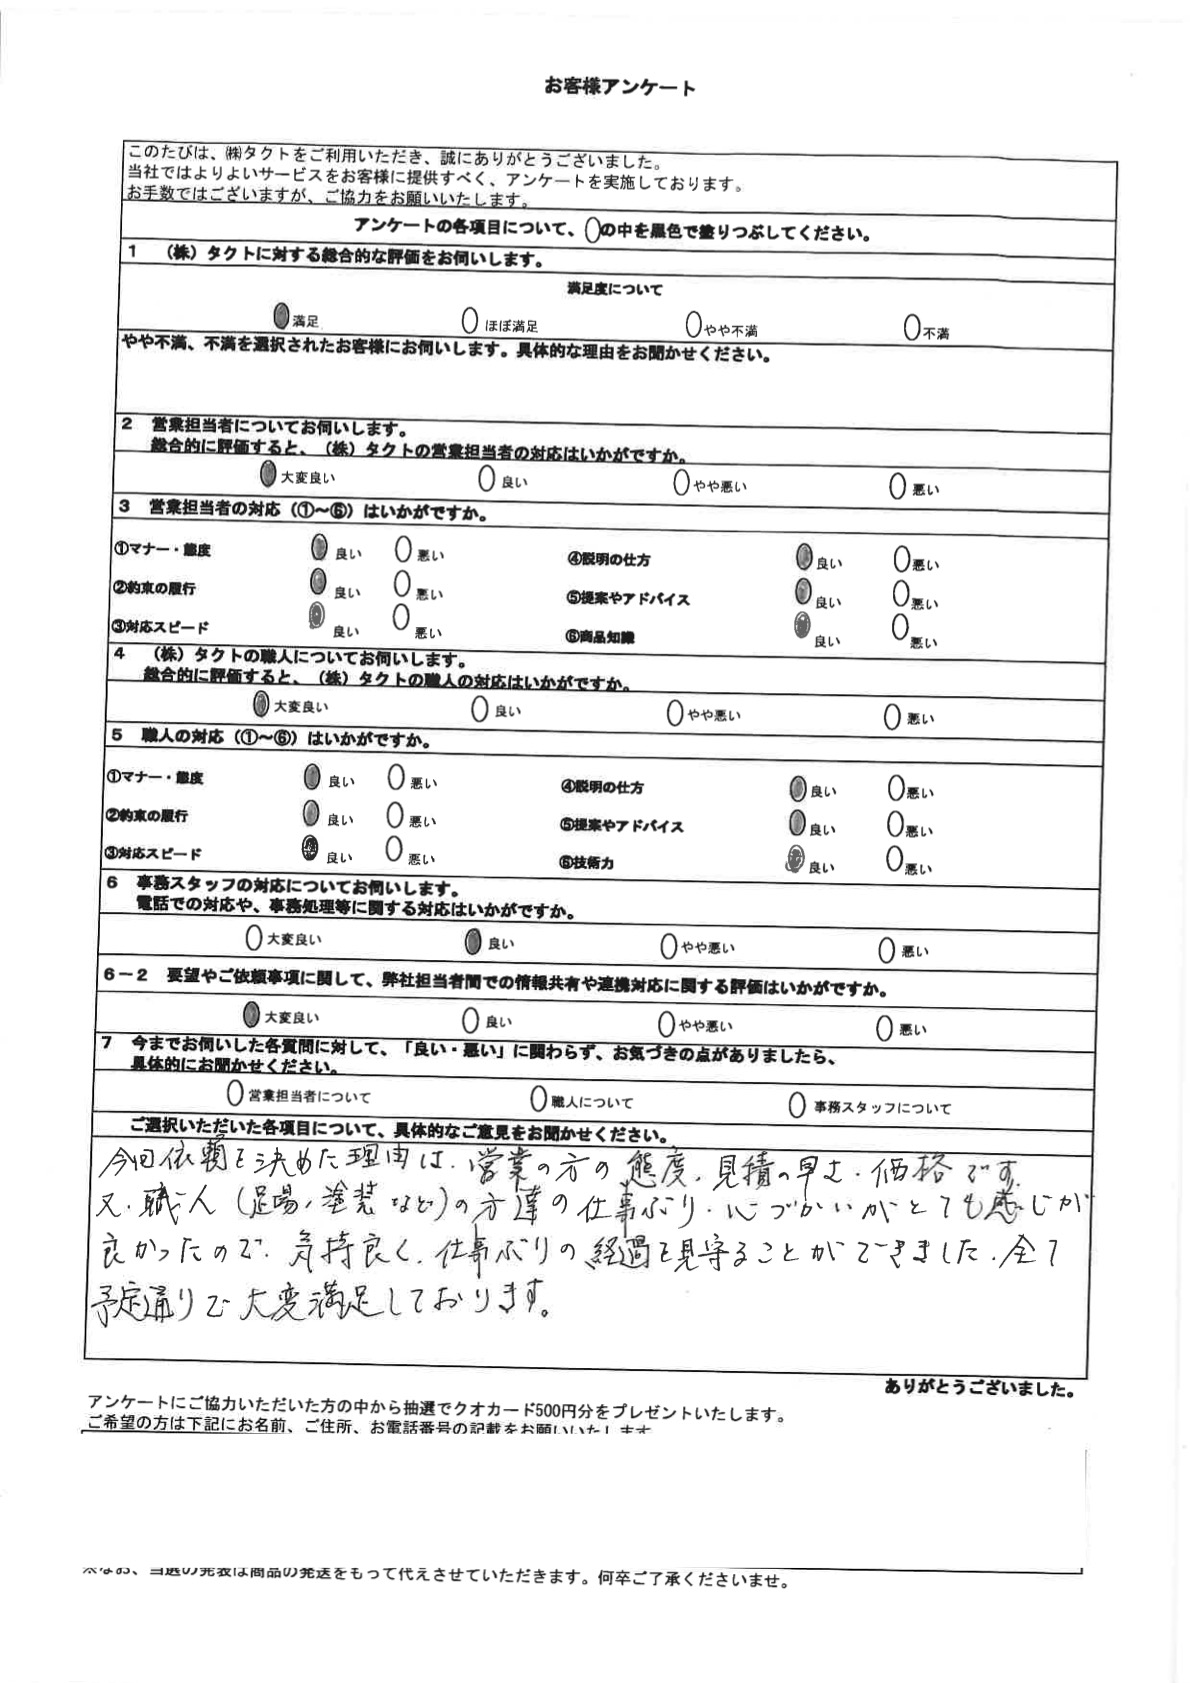 お客様アンケート
このたびは、㈱タクトをご利用いただき、誠にありがとうございました。
当社ではよりよいサービスをお客様に提供すべく、アンケートを実施しております。
お手数ではございますが、ご協力をお願いいたします。
アンケートの各項目について、〇の中を黒色で塗りつぶしてください。
1 （株）タクトに対する総合的な評価をお伺いします。
満足度について
満足 ほぼ満足 やや不満 不満
やや不満、不満を選択されたお客様にお伺いします。具体的な理由をお聞かせください。
2 営業担当者についてお伺いします。
総合的に評価すると、（株）タクトの営業担当者の対応はいかがですか。
大変良い 良い やや悪い 悪い
3 営業担当者の対応（①～⑥）はいかがですか。
①マナー・態度 良い 悪い ④説明の仕方 良い 悪い
②約束の履行 良い 悪い ⑤提案やアドバイス 良い 悪い
③対応スピード 良い 悪い ⑥商品知識 良い 悪い
4 （株）タクトの職人についてお伺いします。
総合的に評価すると、（株）タクトの職人の対応はいかがですか。
大変良い 良い やや悪い 悪い
5 職人の対応（①～⑥）はいかがですか。
①マナー・態度 良い 悪い ④説明の仕方 良い 悪い
②約束の履行 良い 悪い ⑤提案やアドバイス 良い 悪い
③対応スピード 良い 悪い ⑥技術力 良い 悪い
6 事務スタッフの対応についてお伺いします。
電話での対応や、事務処理等に関する対応はいかがですか。
大変良い 良い やや悪い 悪い
6－2 要望やご依頼事項に関して、弊社担当者間での情報共有や連携対応に関する評価はいかがですか。
大変良い 良い やや悪い 悪い
7 今までお伺いした各質問に対して、「良い・悪い」に関わらず、お気づきの点がありましたら、
具体的にお聞かせください。
営業担当者について 職人について 事務スタッフについて
ご選択いただいた各項目について、具体的なご意見をお聞かせください。
今回依頼を決めた理由は、営業の方の態度、見積の早さ、価格です。
又、職人（足場、塗装など）の方達の仕事ぶり、心づかいがとても感じが
良かったので、気持良く、仕事ぶりの経過を見守ることができました。全て
予定通りで大変満足しております。
ありがとうございました。
アンケートにご協力いただいた方の中から抽選でクオカード500円分をプレゼントいたします。
ご希望の方は下記にお名前、ご住所、お電話番号の記載をお願いいたします
※なお、当選の発表は商品の発送をもって代えさせていただきます。何卒ご了承くださいませ。